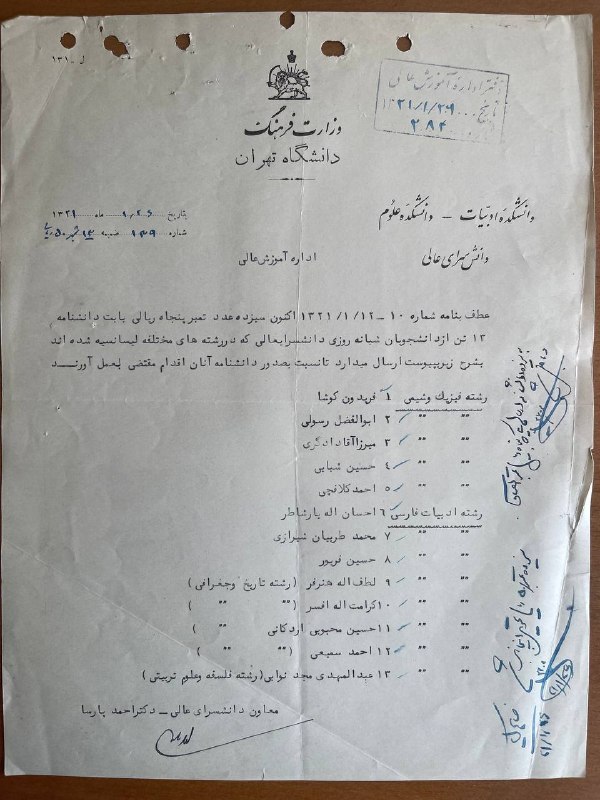 ل ــ ۱۳۱۰
دفتر اداره آموزش عالی
تاریخ ۱۳۲۱/۱/۲۹
۲۸۴
وزارت فرهنگ
دانشگاه تهران
دانشکده ادبیات - دانشکده علوم
دانش سرای عالی
اداره آموزش عالی
بتاریخ ۱۰۲۶ ماه ۱۳۲۱
شماره ۱۴۹ ضمیمه ۱۳ تمبر ۵۰ ریالی
عطف بنامه شماره ۱۰ - ۱۳۲۱/۱/۱۲ اکنون سیزده عدد تمبر پنجاه ریالی بابت دانشنامه
۱۳ تن از دانشجویان شبانه روزی دانشسرایعالی که در رشته های مختلفه لیسانسیه شده اند
بشرح زیر بپیوست ارسال میدارد تا نسبت بصدور دانشنامه آنان اقدام مقتضی بعمل آورند
رشته فیزیک وشیمی ۱ فریدون کوشا
" " ۲ ابوالفضل رسولی
" " ۳ میرزا آقا دادگری
" " ۴ حسین شبابی
" " ۵ احمد کلافچی
رشته ادبیات فارسی ۶ احسان اله یارشاطر
" " ۷ محمد طربیان شیرازی
" " ۸ حسین فرپور
" " ۹ لطف اله هنرفر (رشته تاریخ وجغرافی)
" " ۱۰ کرامت اله افسر ( " " )
" " ۱۱ حسین محبوبی اردکانی ( " " )
" " ۱۲ احمد سمیعی ( " " )
" " ۱۳ عبدالمهدی مجد نوابی (رشته فلسفه وعلوم تربیتی)
معاون دانشسرای عالی - دکتر احمد پارسا